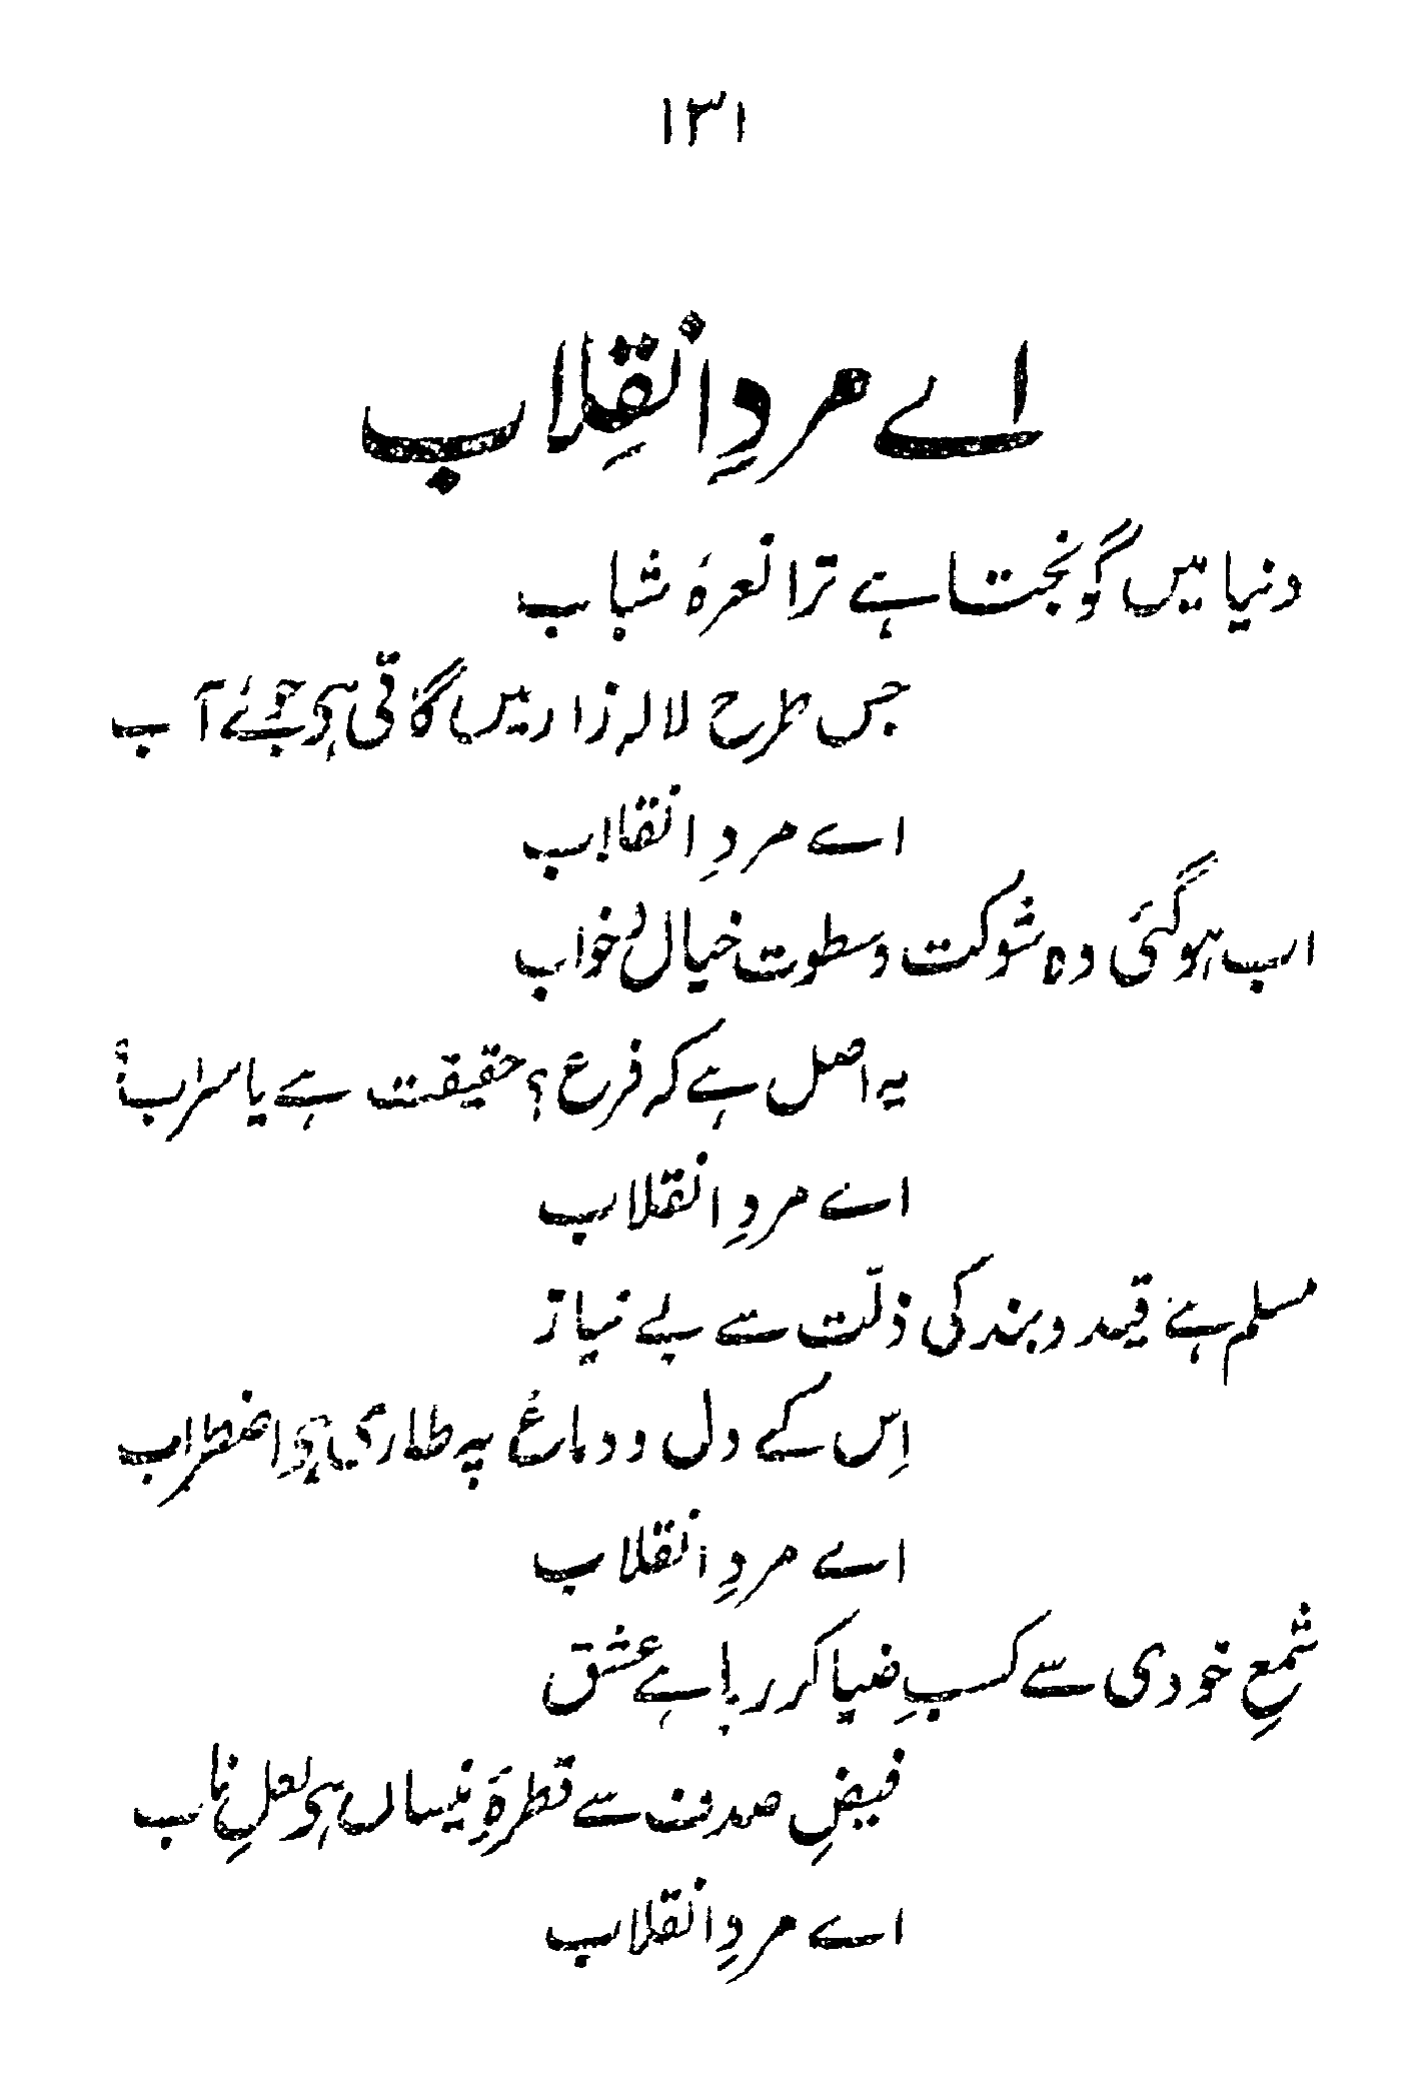 ۱۳۱
اے مردِ انقِلاب
دنیا میں گونجتا ہے ترا نعرۂ شباب
جس طرح لالہ زار میں گاتی ہی جوئے آب
اے مردِ انقلاب
اب ہوگئی وہ شوکت و سطوت خیال و خواب
یہ اصل ہے کہ فرع؟ حقیقت ہے یا سراب؟
اے مردِ انقلاب
مسلم ہے قید و بند کی ذلّت سے بے نیاز
اِس کے دل و دماغ پہ طاری ہی اضطراب
اے مردِ انقلاب
شمعِ خودی سے کسبِ ضیا کر رہا ہے عشق
فیضِ صدف سے قطرۂِ نیساں ہی لعلِ ناب
اے مردِ انقلاب